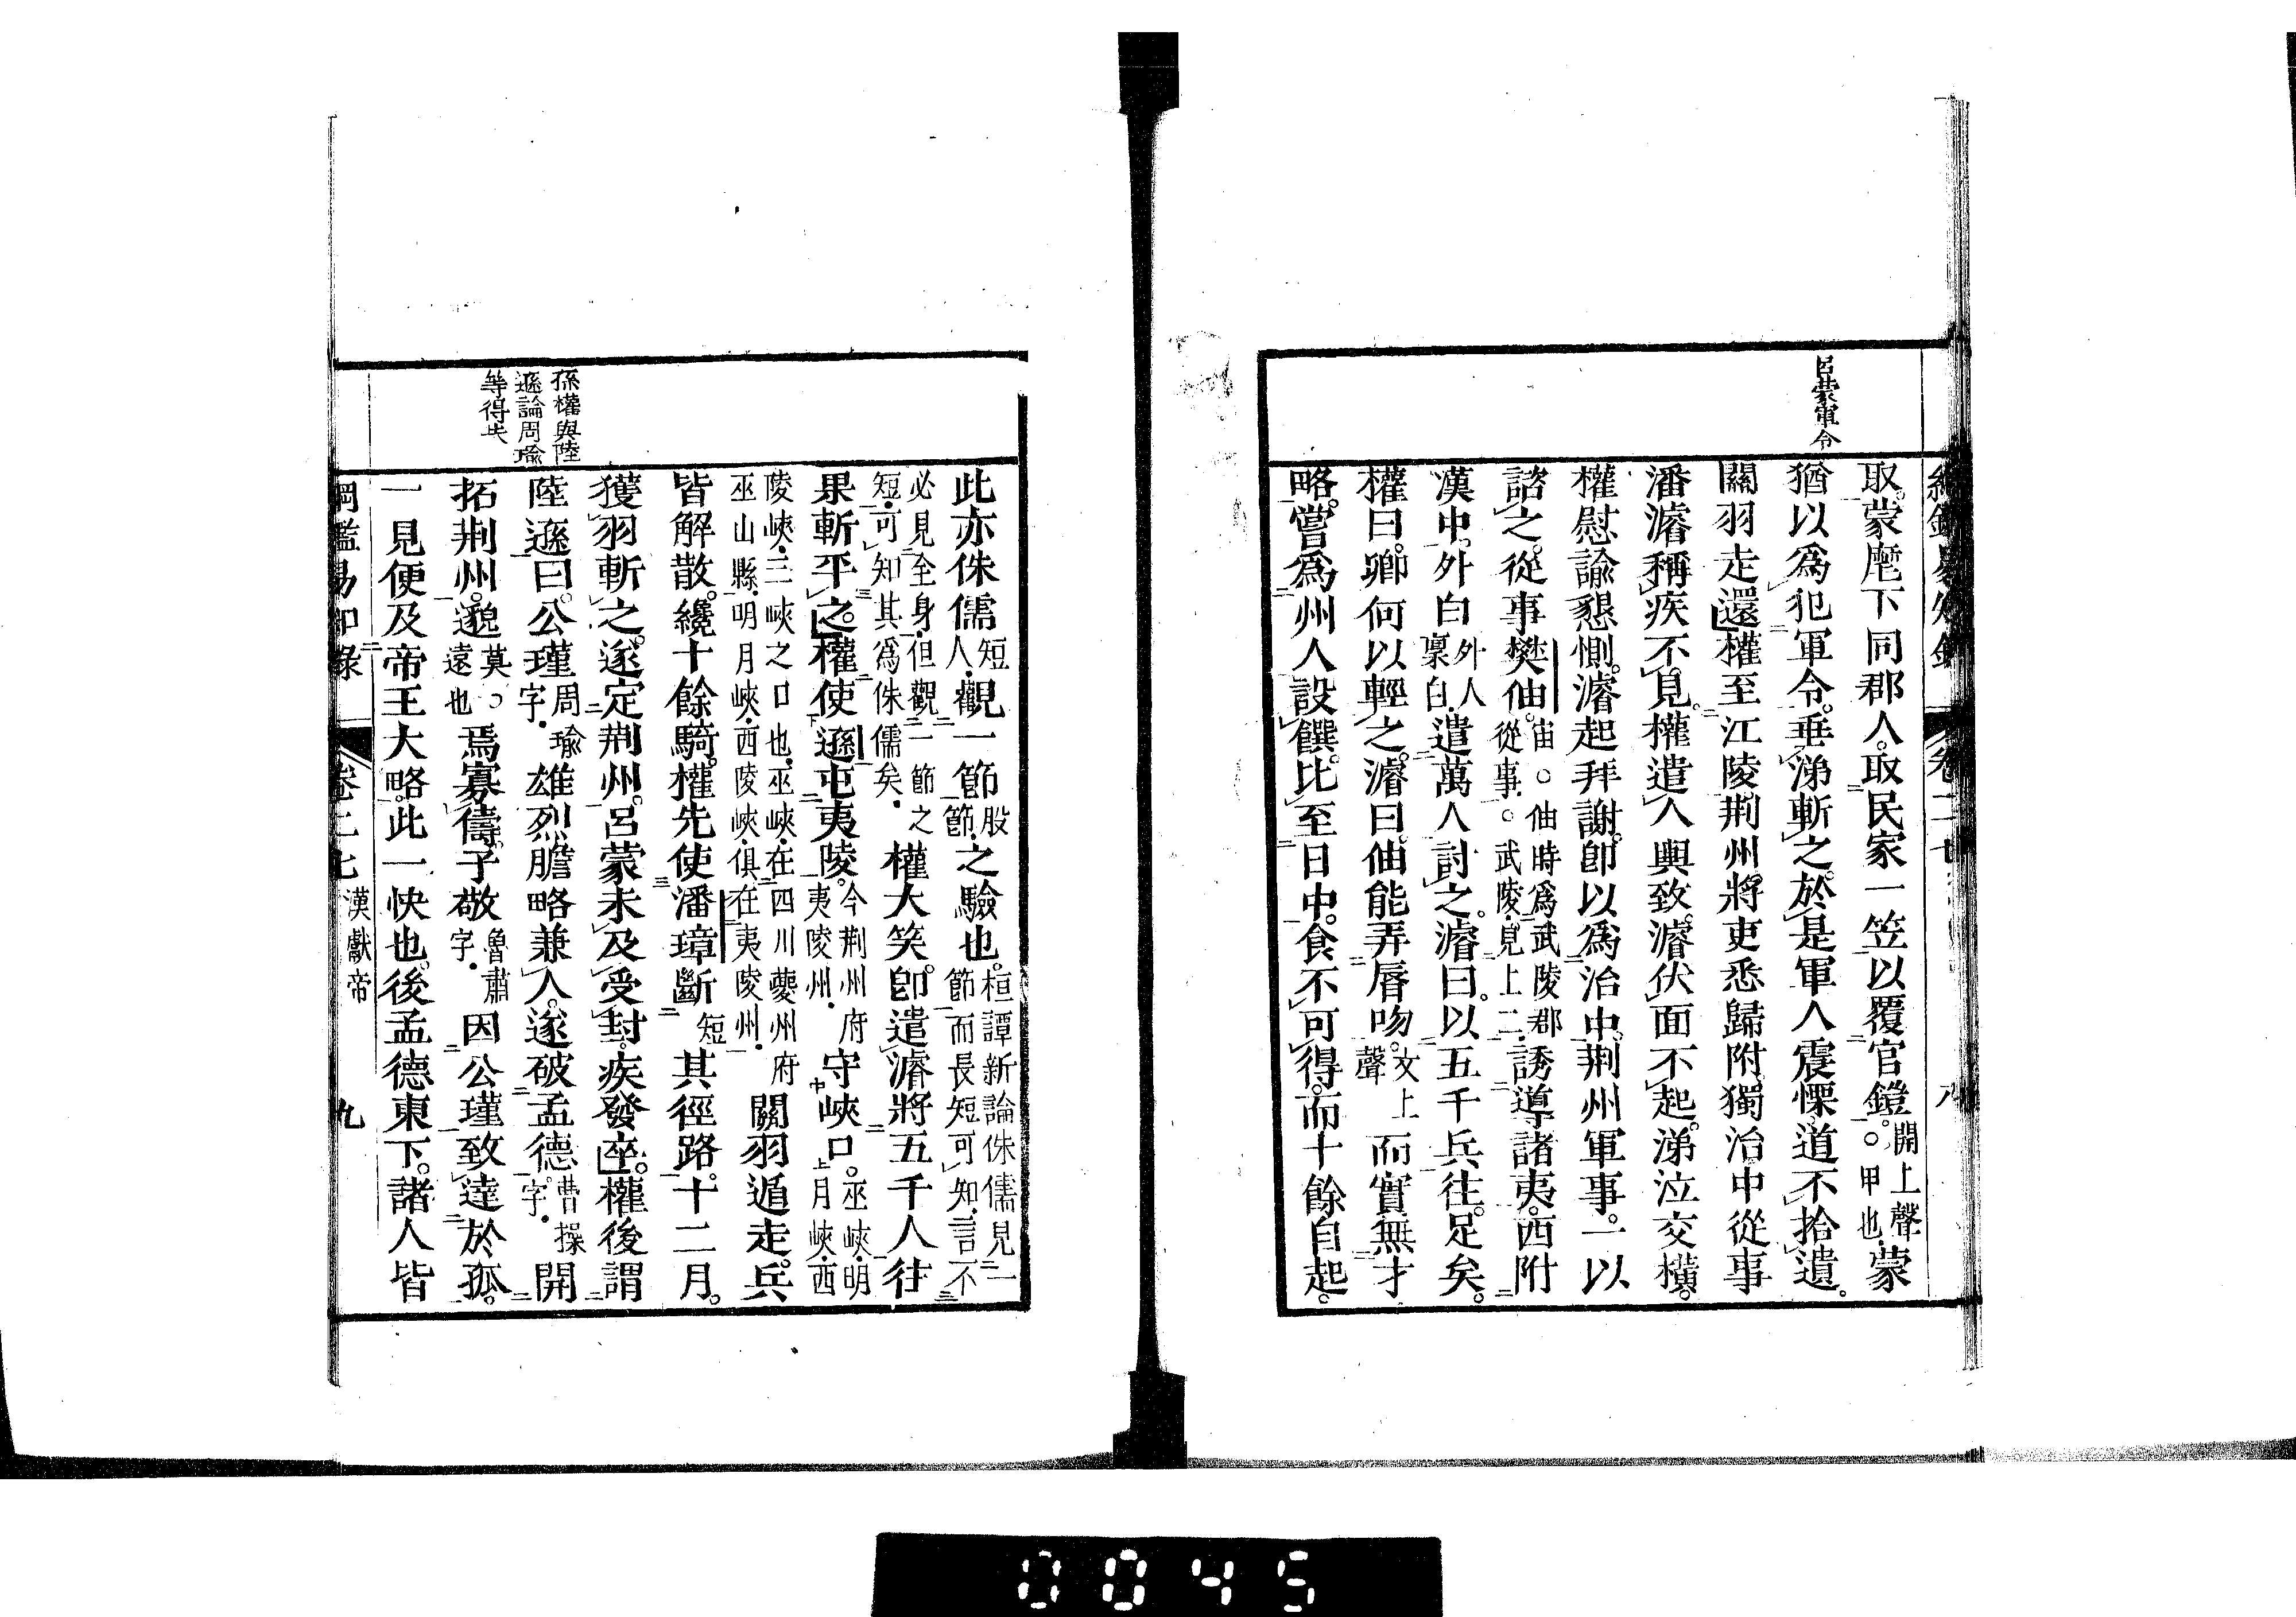 呂蒙軍令
取。蒙麾下同郡人。取民家一笠以覆官鎧。開上聲○甲也。蒙
猶以爲犯軍令。垂涕斬之。於是軍人震慄。道不拾遺。
關羽走還。權至江陵。荆州將吏悉歸附。獨治中從事
潘濬稱疾不見。權遣人輿致。濬伏面不起。涕泣交橫。
權慰諭懇惻。濬起拜謝。卽以爲治中。荆州軍事。一以
諮之。從事樊伷。宙○伷時爲武陵郡從事。○武陵見上二。誘導諸夷。西附
漢中。外白外人稟白。遣萬人討之。濬曰。以五千兵往。足矣。
權曰。卿何以輕之。濬曰。伷能弄唇吻。文上聲而實無才
略。嘗爲州人設饌。比至日中。食不可得。而十餘自起。
孫權與陸
遜論周瑜
等得失
此亦侏儒短人。觀一節股節。之驗也。桓譚新論侏儒見一節而長短可知。言不
必見全身。但觀一節之短。可知其爲侏儒矣。權大笑。卽遣濬將五千人往
果斬平之。權使遜屯夷陵。今荆州府夷陵州。守峽口。巫峽。明月峽。西
陵峽。三峽之口也。巫峽。在四川夔州府巫山縣。明月峽。西陵峽。俱在夷陵州。關羽遁走。兵
皆解散。纔十餘騎。權先使潘璋斷短其徑路。十二月。
獲羽斬之。遂定荆州。呂蒙未及受封。疾發卒。權後謂
陸遜曰。公瑾周瑜字。雄烈膽略兼人。遂破孟德。曹操字。開
拓荆州。邈莫○遠也焉寡儔。子敬魯肅字。因公瑾致達於孤。
一見便及帝王大略。此一快也。後孟德東下。諸人皆
綱鑑易知錄 卷二七 漢獻帝 九